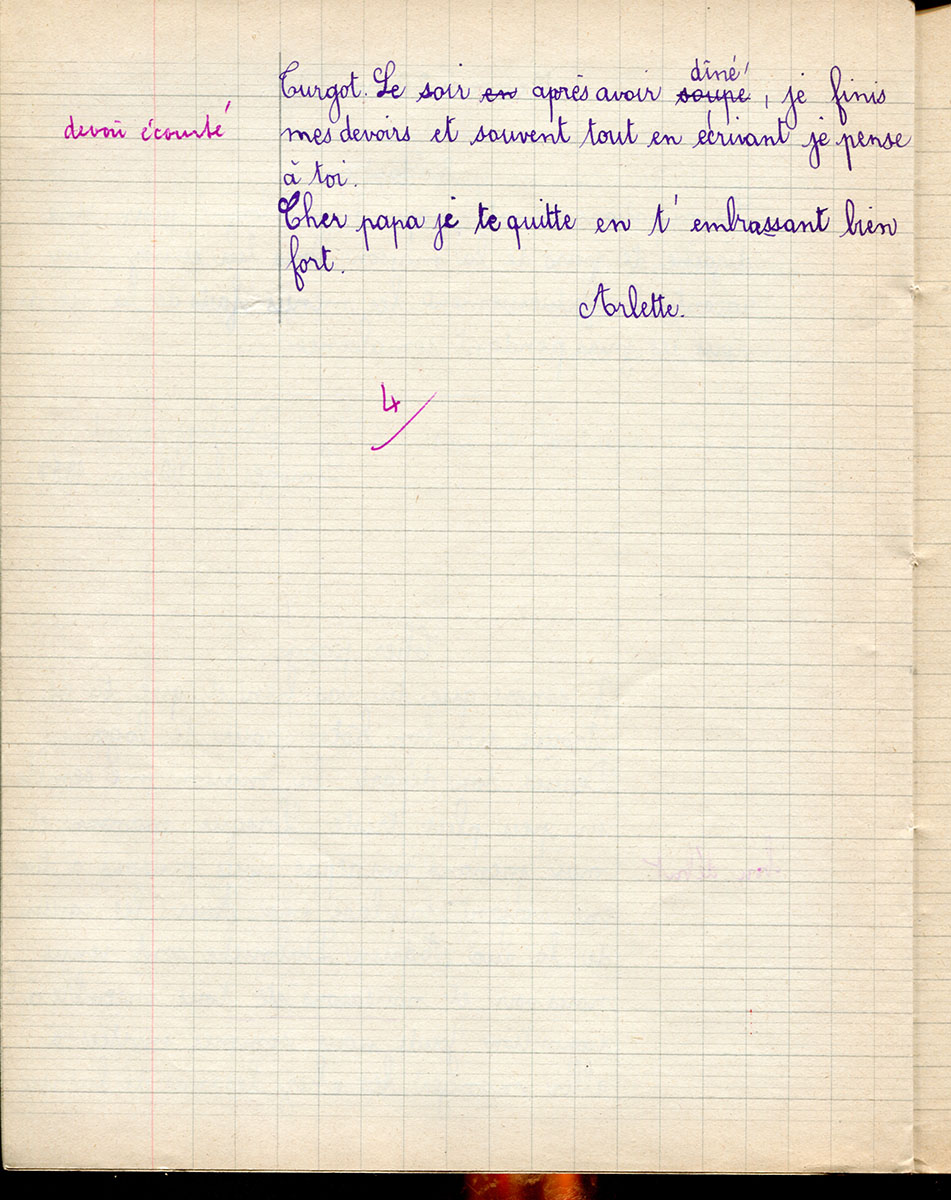 dîné
Turgot. Le soir en après avoir soupé, je finis
devoir écourté
mes devoirs et souvent tout en écrivant je pense
à toi.
Cher papa je te quitte en t'embrassant bien
fort.
Arlette.
4